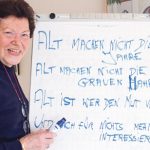 ALT MACHEN NICHT DIE
JAHRE
ALT MACHEN NICHT DIE
GRAUEN HAAR
ALT IST WER DEN MUT V
UND SICH FÜR NICHTS MEHR
INTERESSIER